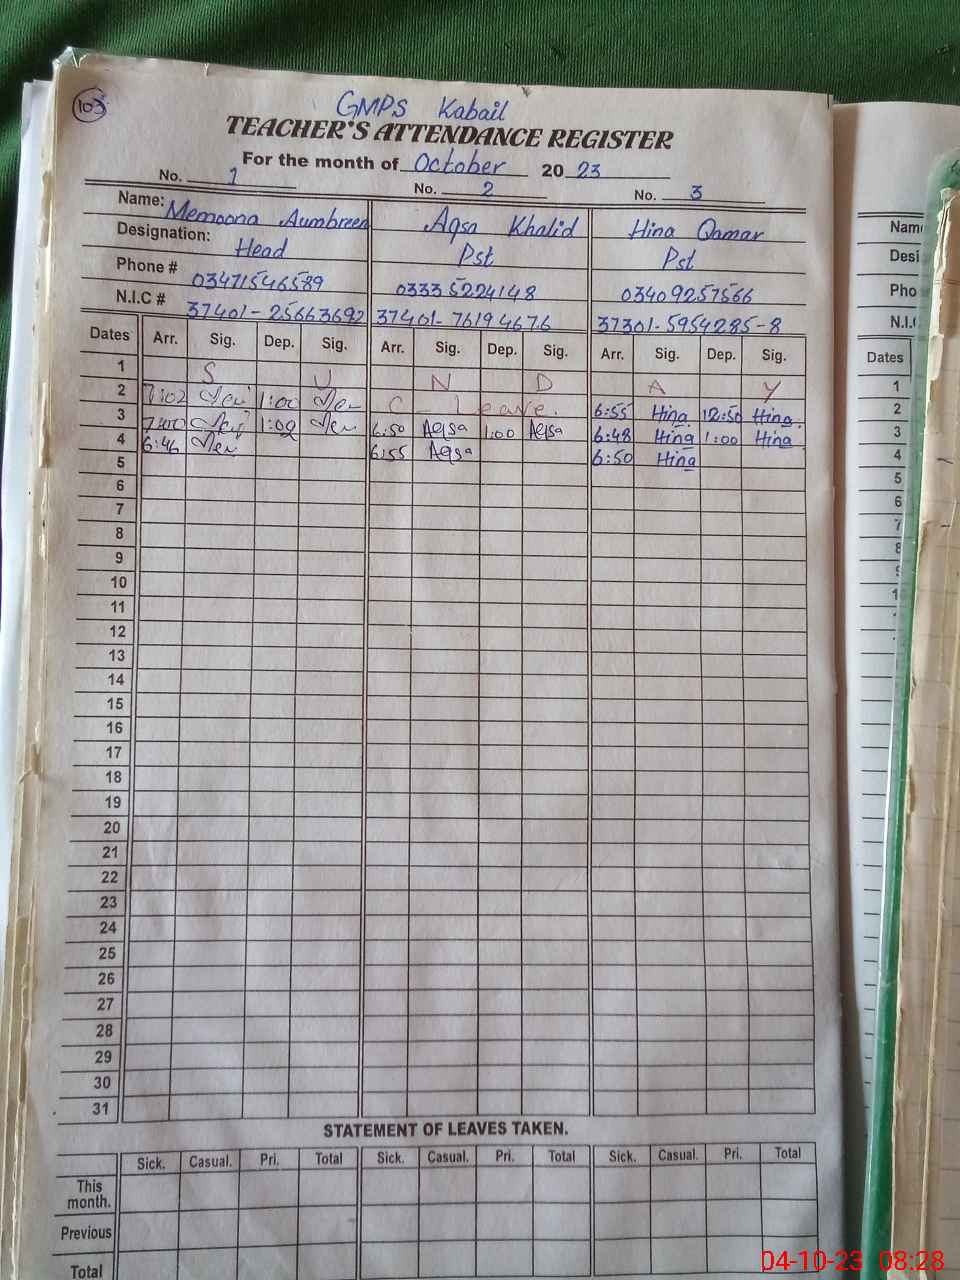 103
GMPS Kabail
TEACHER'S ATTENDANCE REGISTER
For the month of October 2023
No. 1 No. 2 No. 3
Name: Memoona Aumbreen Aqsa Khalid Hina Qamar
Designation: Head Pst Pst
Phone # 03471546589 03335224148 03409257566
N.I.C # 37401-25663692 37401-76194676 37301-5954285-8
Dates Arr. Sig. Dep. Sig. Arr. Sig. Dep. Sig. Arr. Sig. Dep. Sig.
1 S U N D A Y
2 7:02 1:00 C - Leave. 6:55 Hina 12:50 Hina
3 7:00 1:00 6:50 Aqsa 1:00 Aqsa 6:48 Hina 1:00 Hina
4 6:46 6:55 Aqsa 6:50 Hina
5
6
7
8
9
10
11
12
13
14
15
16
17
18
19
20
21
22
23
24
25
26
27
28
29
30
31
STATEMENT OF LEAVES TAKEN.
Sick. Casual. Pri. Total Sick. Casual. Pri. Total Sick. Casual. Pri. Total
This month.
Previous
Total
Dates
1
2
3
4
5
6
7
8
04-10-23 08:28